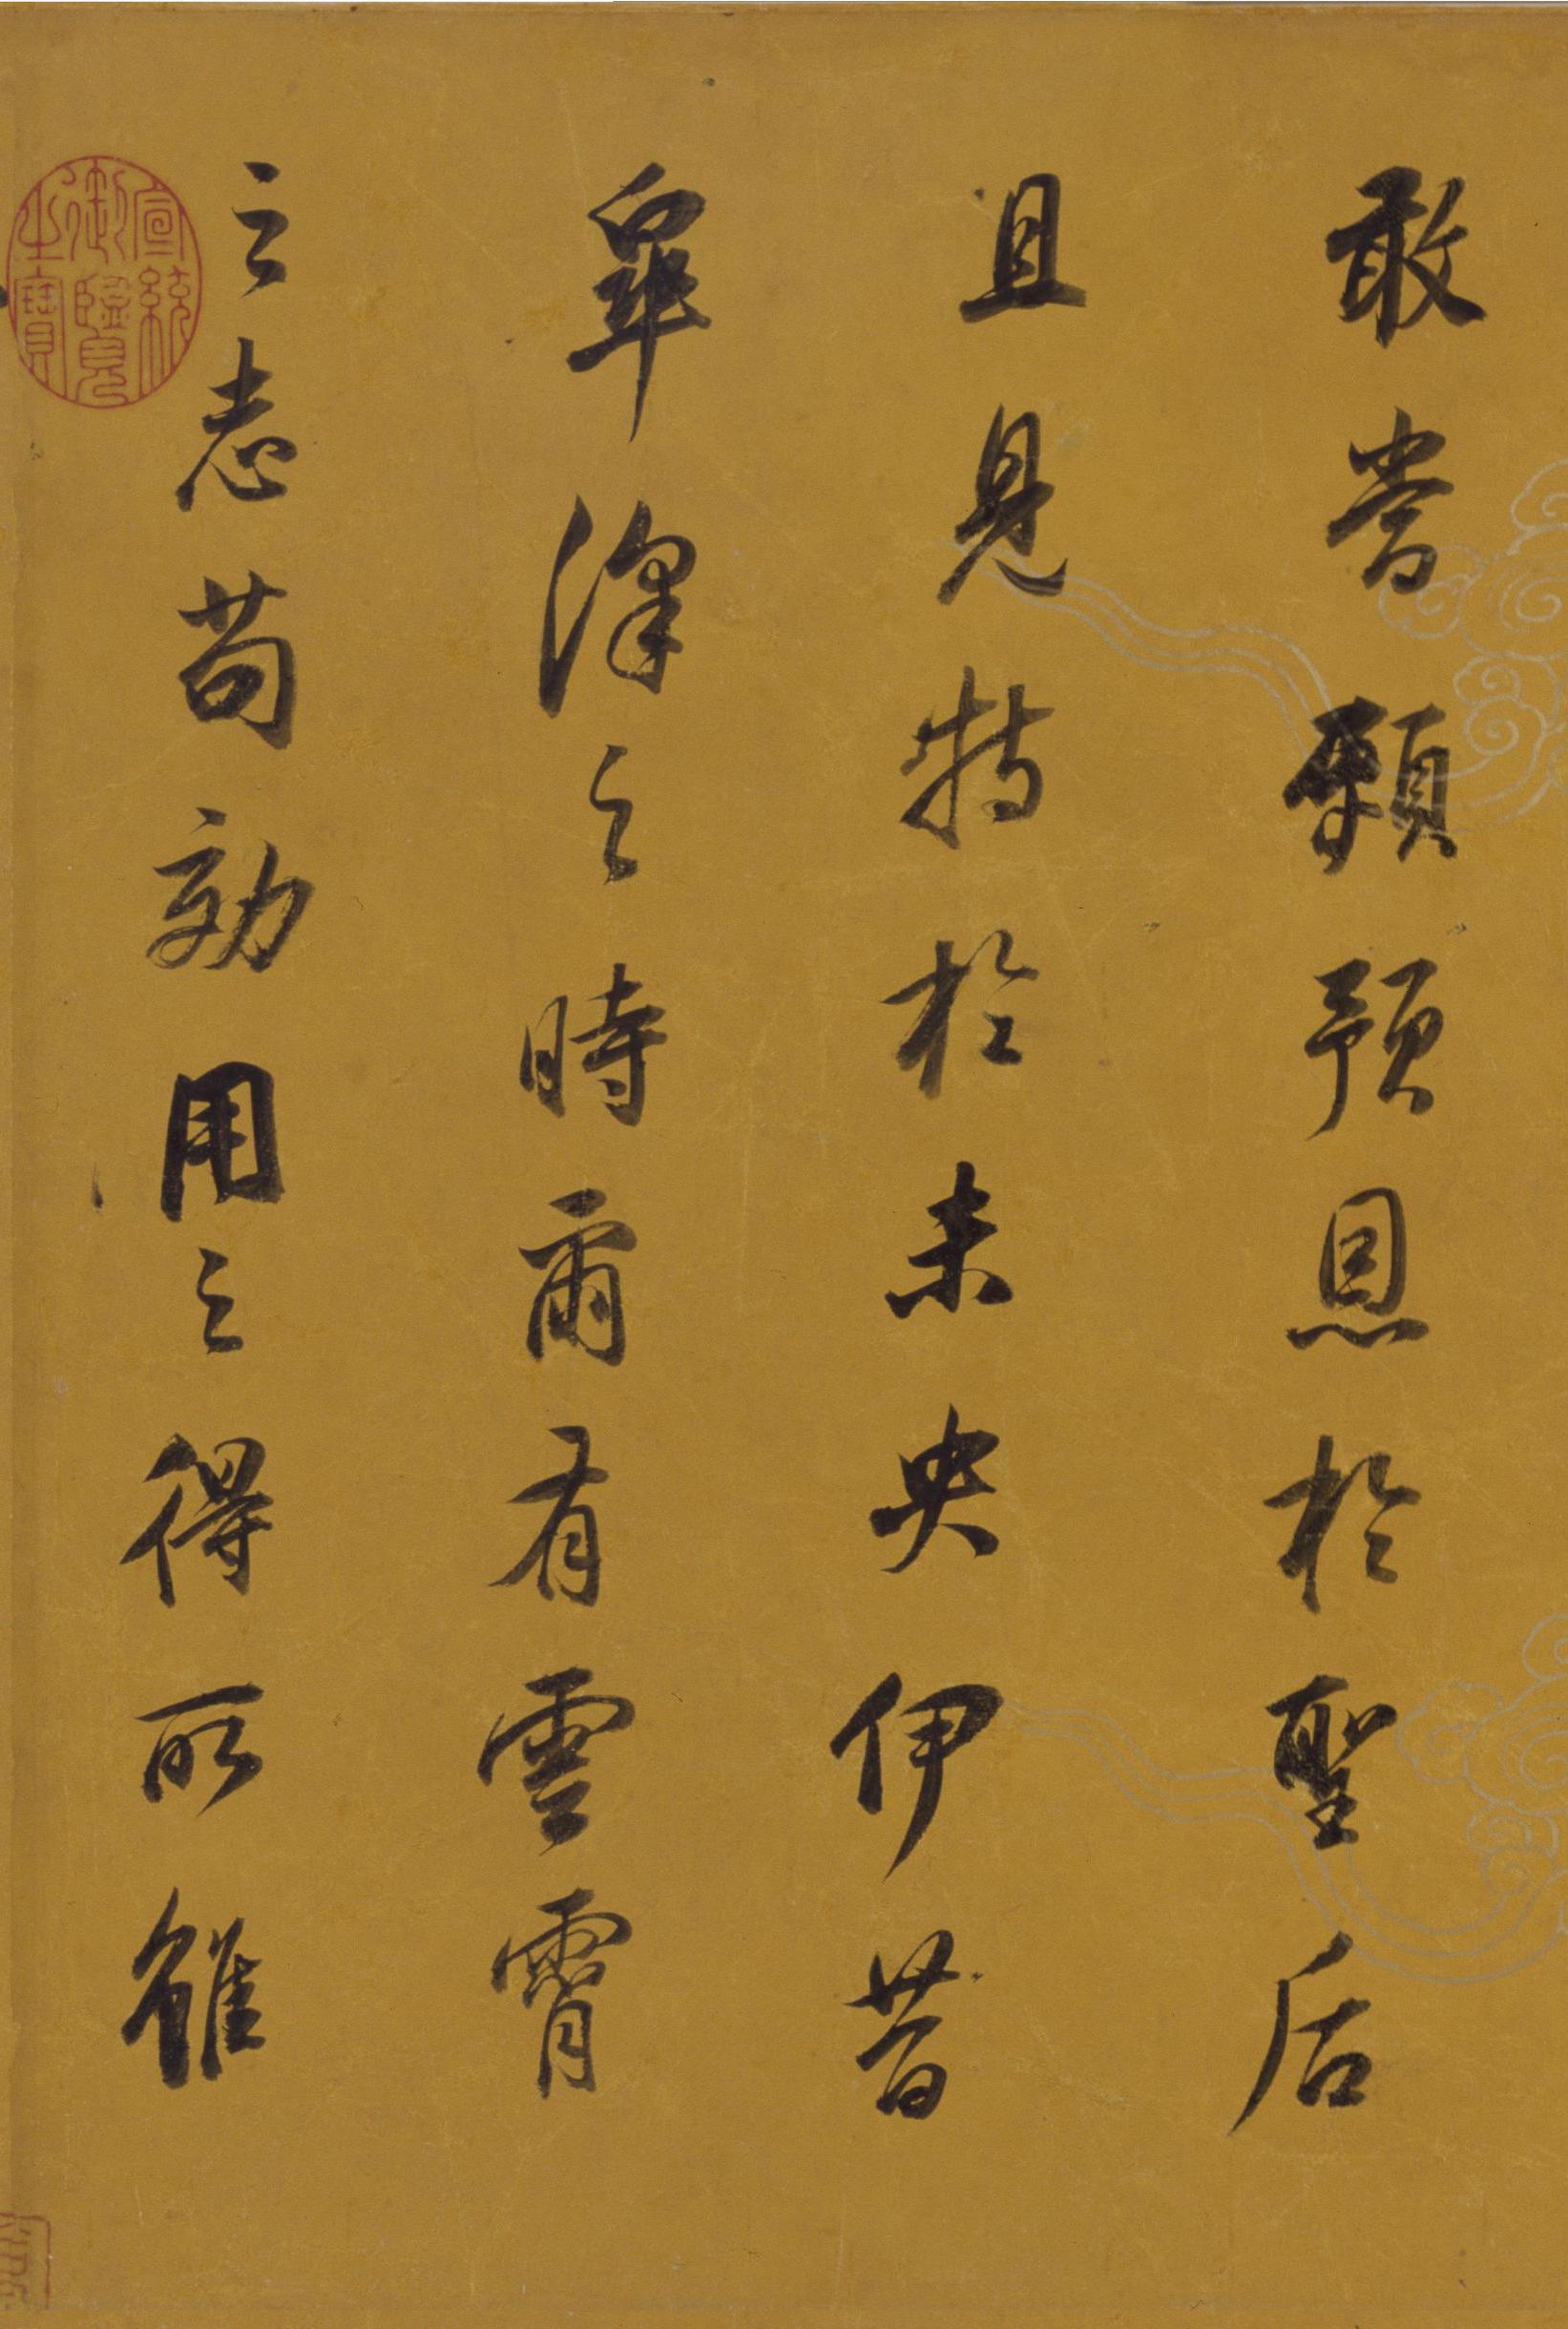 敢當顧預恩於聖后
且見持於未央伊昔
皋澤之時爾有雲霄
之志苟効用之得所雖
宣統御覽之寶